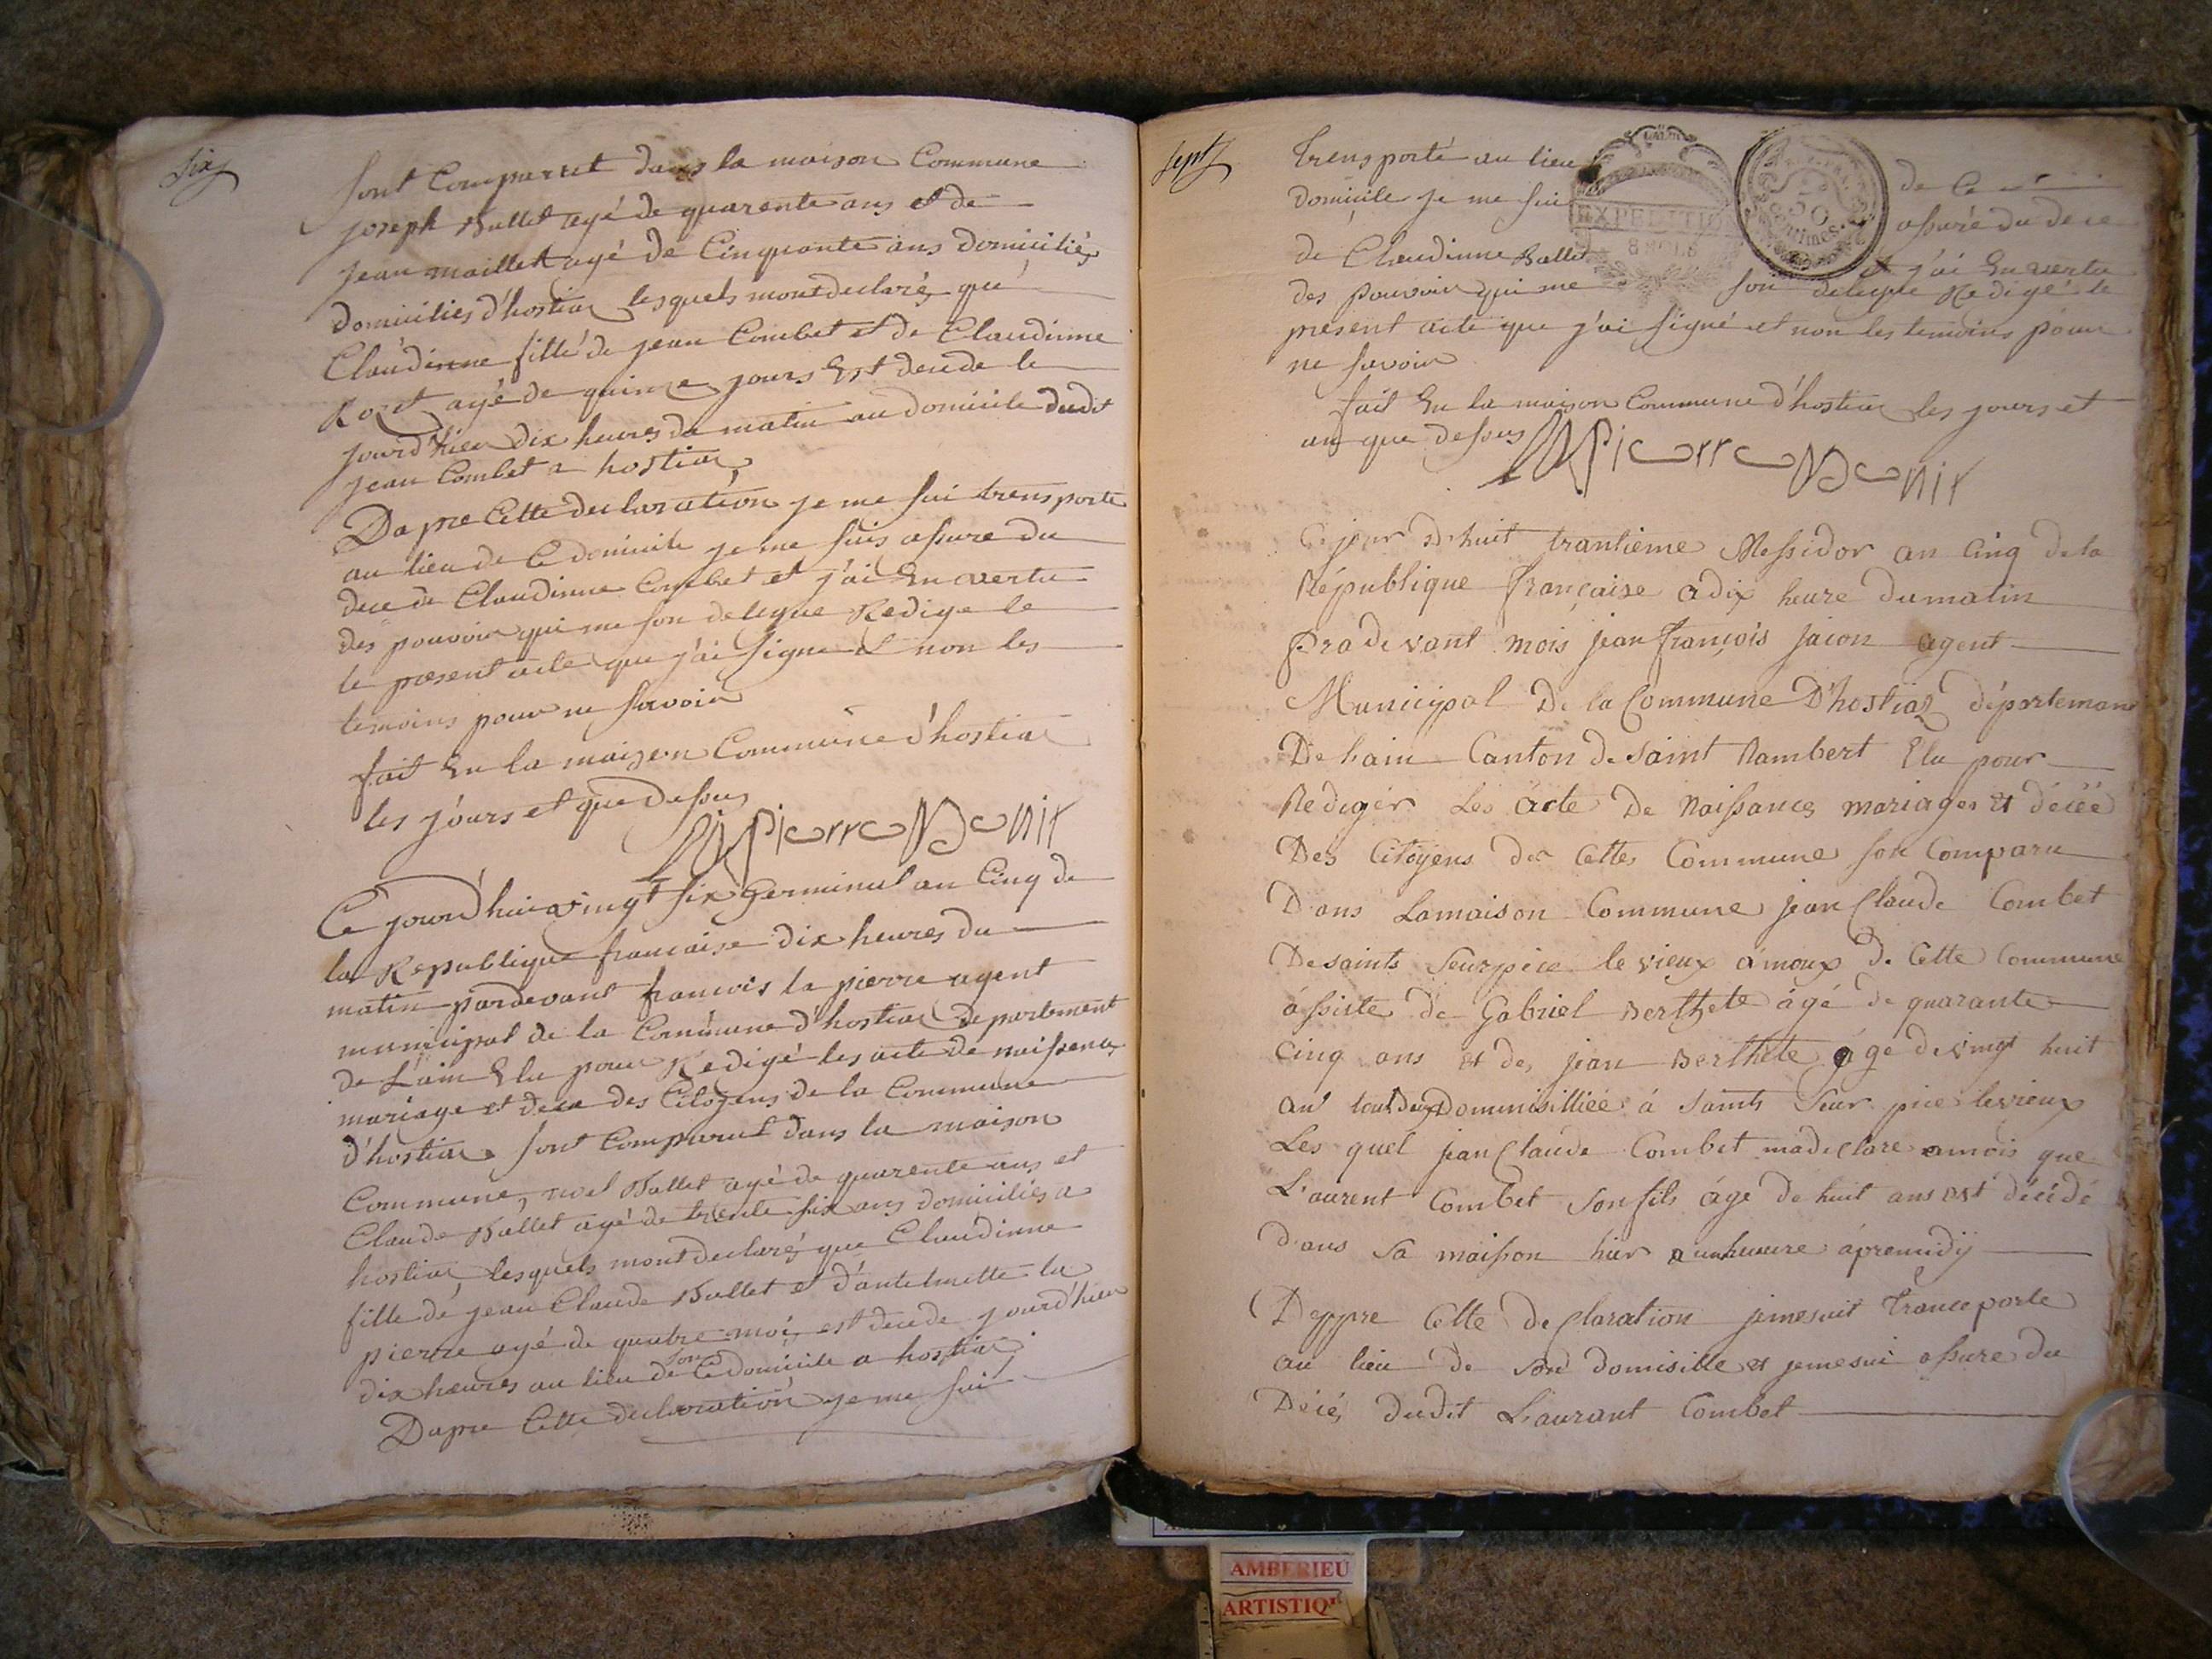 six
sont Comparut dans la maison Commune
joseph Ballet agé de quarente ans et de
jean maillet agé de Cinquante ans domiciliés
domicilies d'hostiaz lesquels mont declaré que
Claudinne fille de jean Combet et de Claudinne
Rozet agé de quinze jours Est decede le
jourd'hier dix heures du matin au domicile dudit
jean Combet a hostiaz
Dapre Cette declaration je me sui trensporte
au lieu de Ce domicile je me suis assure du
dece de Claudinne Combet et j'ai En vertu
des pouvoir qui me son delegue Redige le
le present acte que j'ai signe et non les
temoins pour ne savoir
fait En la maizon Commune d'hostiaz
les jours et que dessus
Ce jourd'hui vingt six Germinal an Cinq de
la Republique francaise dix heures du
matin pardevant francois la pierre agent
municipal de la Commune d'hostiaz departement
de L'ain Elu pour Redigé les acte de naissence
mariage et dece des Citoyens de la Commune
d'hostiaz sont Comparut dans la maison
Commune, noel Ballet agé de quarente ans et
Claude Ballet agé de trente six ans domiciliés a
hostiaz lesquels mont declaré que Claudinne
fille de jean Claude Ballet et d'antelmette la
pierre agé de quatre moi est decede jourd'hier
dix heures au lieu de son Ce domicile a hostiaz
Dapre Cette declaration je me sui
sept
Trensporté au lieu de Ce
domicile je me sui assuré du dece
de Claudinne Ballet et j'ai En vertu
des pouvoir qui me son delegue Redigé le
present acte que j'ai signé et non les temoins pour
ne savoir
fait En la maison Commune d'hostiaz les jours et
an que dessus
EXPEDITIO
50
Centimes.
Ce jour dhuit trantieme Messidor an Cinq de la
République française a dix heure du matin
pradevant mois jean françois jacon agent
Municipal De la Commune D'hostiaz départemant
De hain Canton de Saint Rambert Elu pour
Rediger Les acte De Naissances mariages et décée
Des Citoyens de Cettes Commune son Comparu
Dans Lamaison Commune jean Claude Combet
De saints Seurpice le vieux a moux de Cette Commune
assiste de Gabriel Berthete âgé de quarante
Cinq ans et de jean Berthete agé de vingt huit
an tout deux Dommisilliée á Saints Seur pice levieux
Les quel jean Claude Combet madeclare amois que
Laurent Combet Son fils áge de huit ans est décédé
Dans sa maison hier a unheure áprémidÿ
Deppre Cette Declaration jemesuit Tranceporte
au lieu de Son domisille et jemesui assure du
Décés dudit Laurant Combet
AMBERIEU
ARTISTIQ